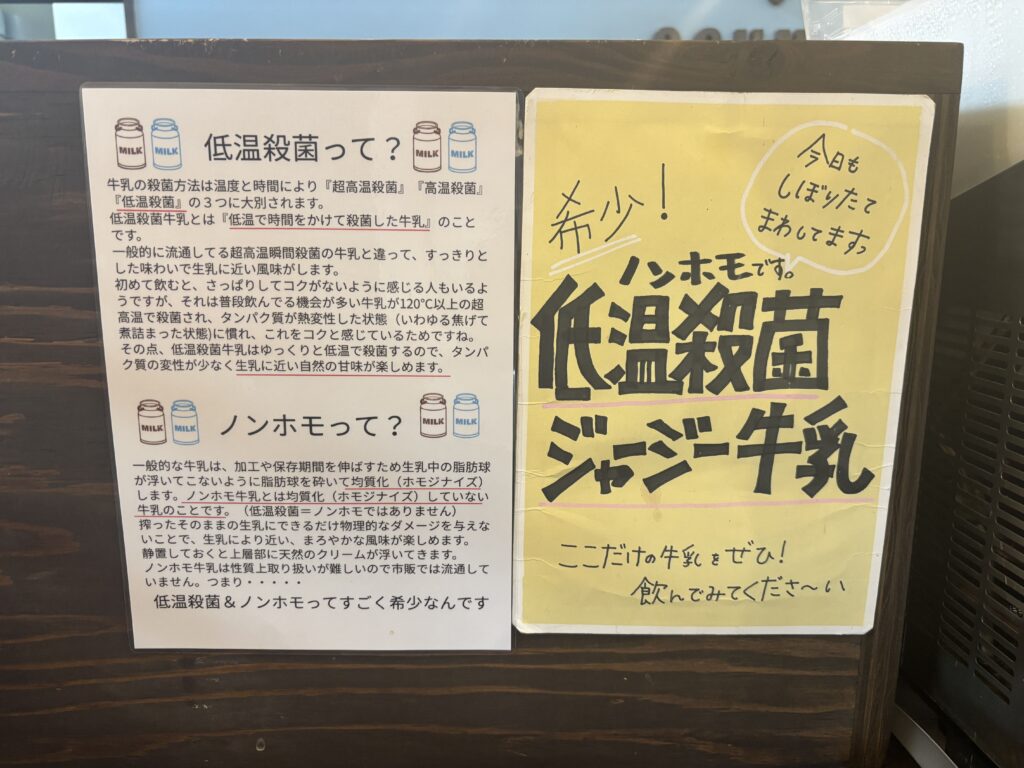 MILK
MILK
低温殺菌って？
MILK
MILK
牛乳の殺菌方法は温度と時間により『超高温殺菌』『高温殺菌』
『低温殺菌』の３つに大別されます。
低温殺菌牛乳とは『低温で時間をかけて殺菌した牛乳』のこと
です。
一般的に流通してる超高温瞬間殺菌の牛乳と違って、すっきりと
した味わいで生乳に近い風味がします。
初めて飲むと、さっぱりしてコクがないように感じる人もいるよ
うですが、それは普段飲んでる機会が多い牛乳が120℃以上の超
高温で殺菌され、タンパク質が熱変性した状態（いわゆる焦げて
煮詰まった状態)に慣れ、これをコクと感じているためですね。
その点、低温殺菌牛乳はゆっくりと低温で殺菌するので、タンパ
ク質の変性が少なく生乳に近い自然の甘味が楽しめます。
MILK
MILK
ノンホモって？
MILK
MILK
一般的な牛乳は、加工や保存期間を伸ばすため生乳中の脂肪球
が浮いてこないように脂肪球を砕いて均質化（ホモジナイズ）
します。ノンホモ牛乳とは均質化（ホモジナイズ）していない
牛乳のことです。（低温殺菌＝ノンホモではありません）
搾ったそのままの生乳にできるだけ物理的なダメージを与えな
いことで、生乳により近い、まろやかな風味が楽しめます。
静置しておくと上層部に天然のクリームが浮いてきます。
ノンホモ牛乳は性質上取り扱いが難しいので市販では流通して
いません。つまり・・・・・
低温殺菌＆ノンホモってすごく希少なんです
今日も
しぼりたて
まわしてますっ
希少！
ノンホモです。
低温殺菌
ジャージー牛乳
ここだけの牛乳をぜひ！
飲んでみてくださ〜い